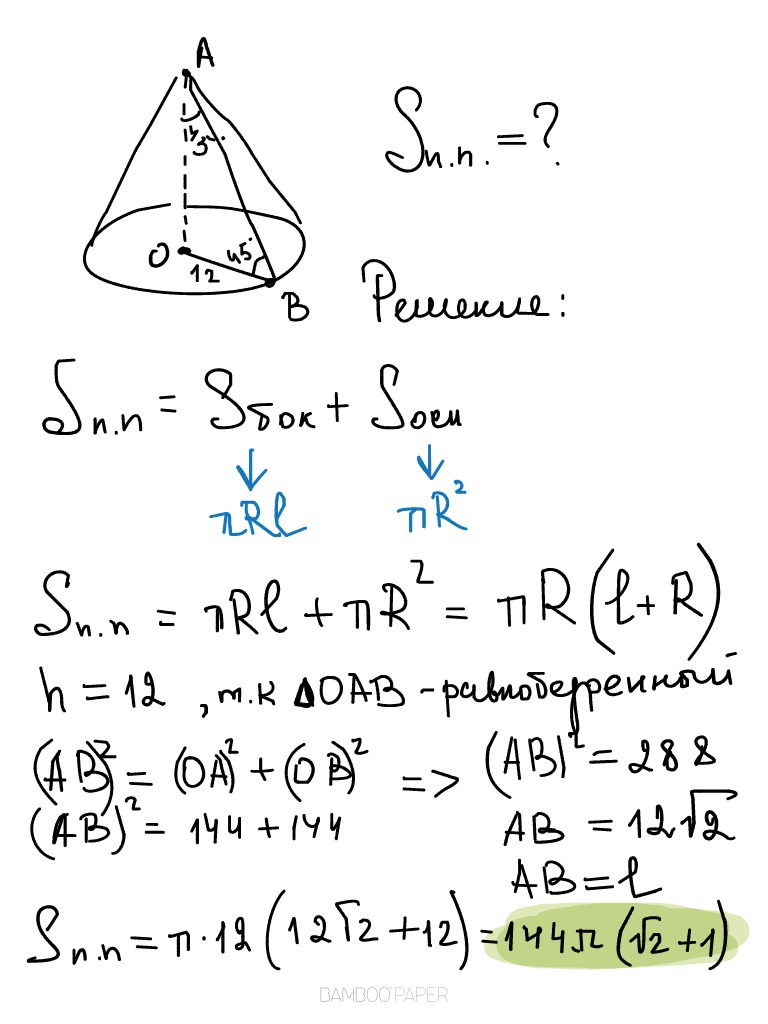 A
45°
Sп.п. = ?
O
12
45°
B
Решение:
Sп.п = Sбок + Sосн
πRl
πR²
Sп.п = πRl + πR² = πR(l + R)
h = 12 , т.к ΔOAB - равнобедренный
(AB)² = (OA)² + (OB)² => (AB)² = 288
(AB)² = 144 + 144
AB = 12√2
AB = l
Sп.п = π · 12 (12√2 + 12) = 144π (√2 + 1)
BAMBOO PAPER